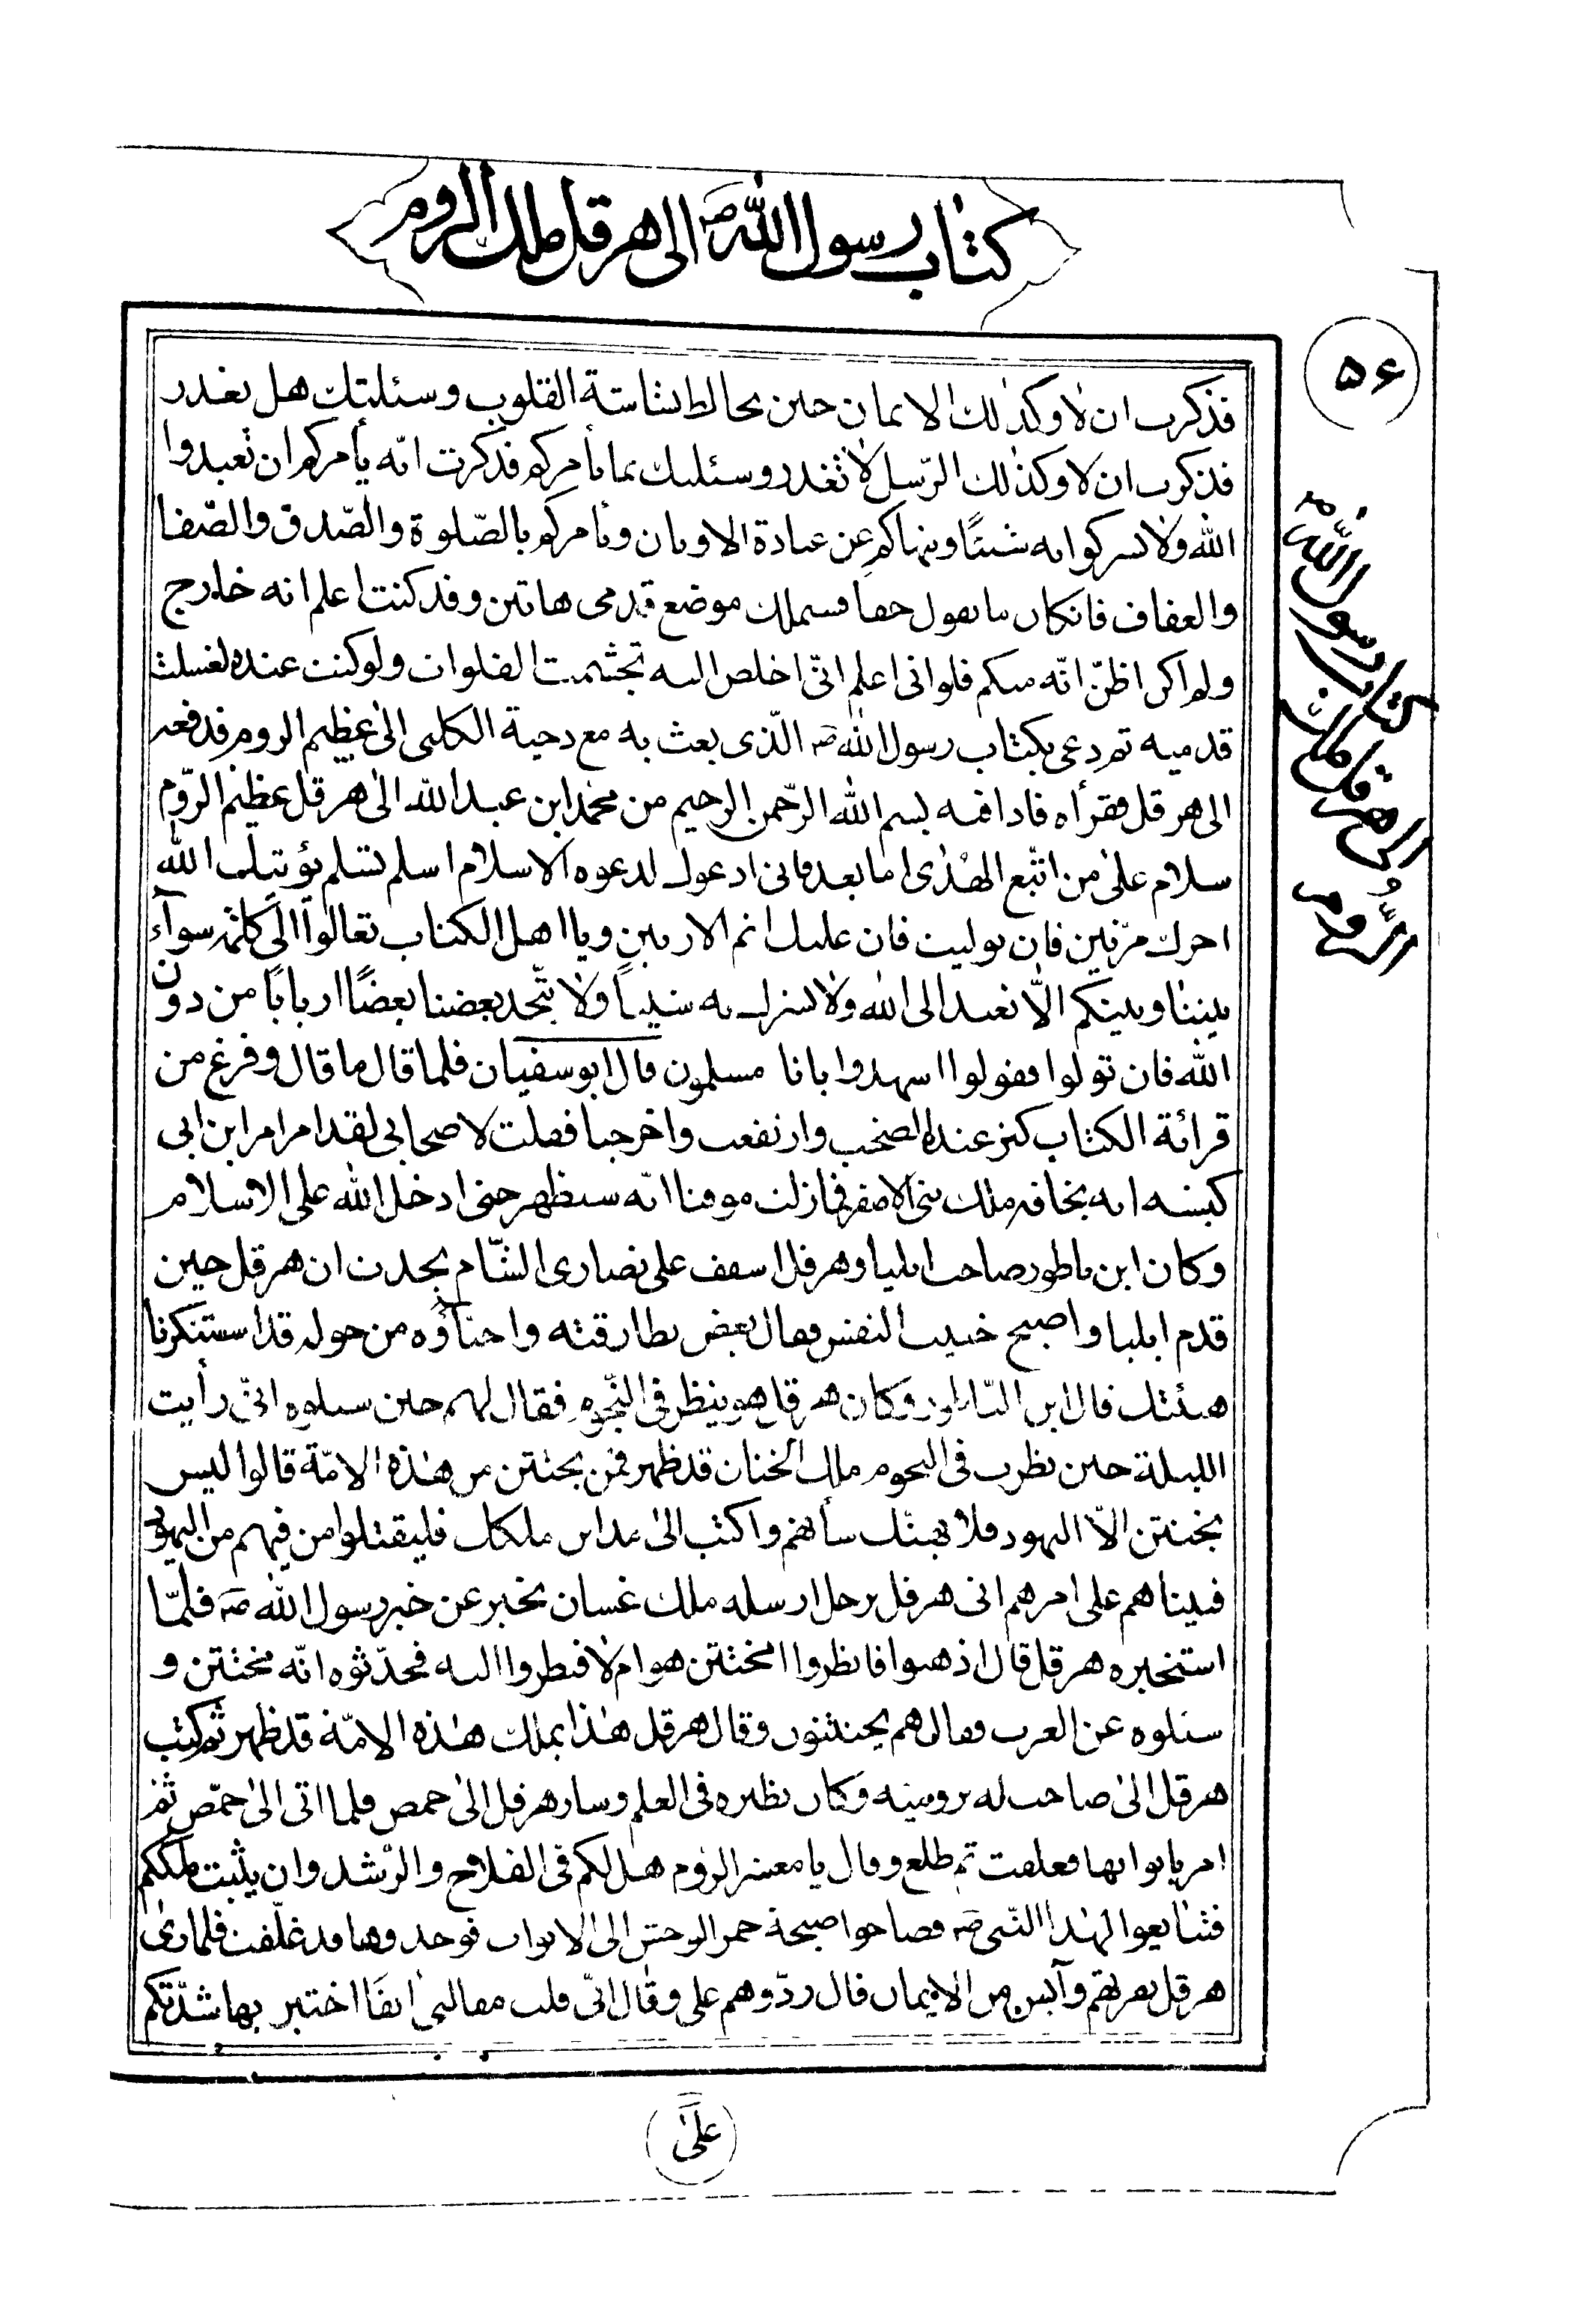 كتاب رسول الله ص الى هرقل ملك الروم
۵۶
فذكرت ان لا وكذلك الايمان حين يخالط بشاشة القلوب وسئلتك هل يغدر
فذكرت ان لا وكذلك الرّسل لا تغدر وسئلتك بما يأمركم فذكرت انّه يأمركم ان تعبدوا
الله ولا تشركوا به شيئًا وينهاكم عن عبادة الاوثان ويأمركم بالصّلوة والصّدق والصّفا
والعفاف فانكان ما تقول حقا فسيملك موضع قدمى هاتين وقد كنت اعلم انه خارج
ولم اكن اظنّ انّه منكم فلو انى اعلم انّى اخلص اليه تجشمت لقلوان ولو كنت عنده لغسلت
قدميه ثم دعى بكتاب رسول الله ص الّذى بعث به مع دحية الكلبى الى عظيم الروم فدفعه
الى هرقل فقرأه فاذا فيه بسم الله الرّحمن الرحيم من محمد ابن عبد الله الى هرقل عظيم الرّوم
سلام على من اتّبع الهُدٰى اما بعد فانى ادعوك لدعوة الاسلام اسلم تسلم يؤتيك الله
اجرك مرّتين فان توليت فان عليك اثم الاريسين ويا اهل الكتاب تعالوا الى كلمة سوآء
بيننا وبينكم الّا نعبد الى الله ولا نشرك به شيئاً ولا يتّخذ بعضنا بعضًا اربابًا من دون
الله فان تولوا فقولوا اشهدوا بانا مسلمون قال ابوسفيان فلما قال ما قال وفرغ من
قرائة الكتاب كثر عنده الصخب وارتفعت واخرجنا فقلت لاصحابى لقد امر امر ابن ابى
كبشه انه يخافه ملك بنى الاصفر فما زلت موقنا انّه سيظهر حتى ادخل الله على الاسلام
وكان ابن ناطور صاحب ايليا وهرقل اسقف على نصارى الشّام يحدث ان هرقل حين
قدم ايليا واصبح خبيث النفس فقال بعض بطارقته واحناؤه من حوله قد استنكرنا
هيئتك قال ابن النّاطور وكان هرقل هو ينظر فى النّجوم فقال لهم حين سئلوه انّى رأيت
الليلة حين نظرت فى النجوم ملك الختان قد ظهر فمن يختتن من هذه الامّة قالوا ليس
يختتن الّا اليهود فلا يهمنّك شأنهم واكتب الى مداين ملكك فليقتلوا من فيهم من اليهود
فبيناهم على امرهم اتى هرقل برجل ارسله ملك غسان يخبر عن خبر رسول الله ص فلمّا
استخبره هرقل قال اذهبوا فانظروا امختتن هو ام لا فنظروا اليه فحدّثوه انّه مختتن و
سئلوه عن العرب فقال هم يختتنون وقال هرقل هذا يملك هذه الامّة قد ظهر ثم كتب
هرقل الى صاحب له برومية وكان نظيره فى العلم وسار هرقل الى حمص فلما اتى الى حمّص ثم
امر بابوابها فعلقت ثم طلع وقال يا معشر الرّوم هل لكم فى الفلاح والرّشد وان يثبت ملككم
فتتابعوا لهذا النّبى ص فصاحوا صيحة حمر الوحش الى الابواب فوجدوها قد غلّقت فلما رأى
هرقل نفرتهم وآيس من الايمان قال ردّوهم على وقال انّى قلت مقالتى انفًا اختبر بها شدّتكم
كتاب رسول الله ص
الى هرقل ملك
الرُّوم
على